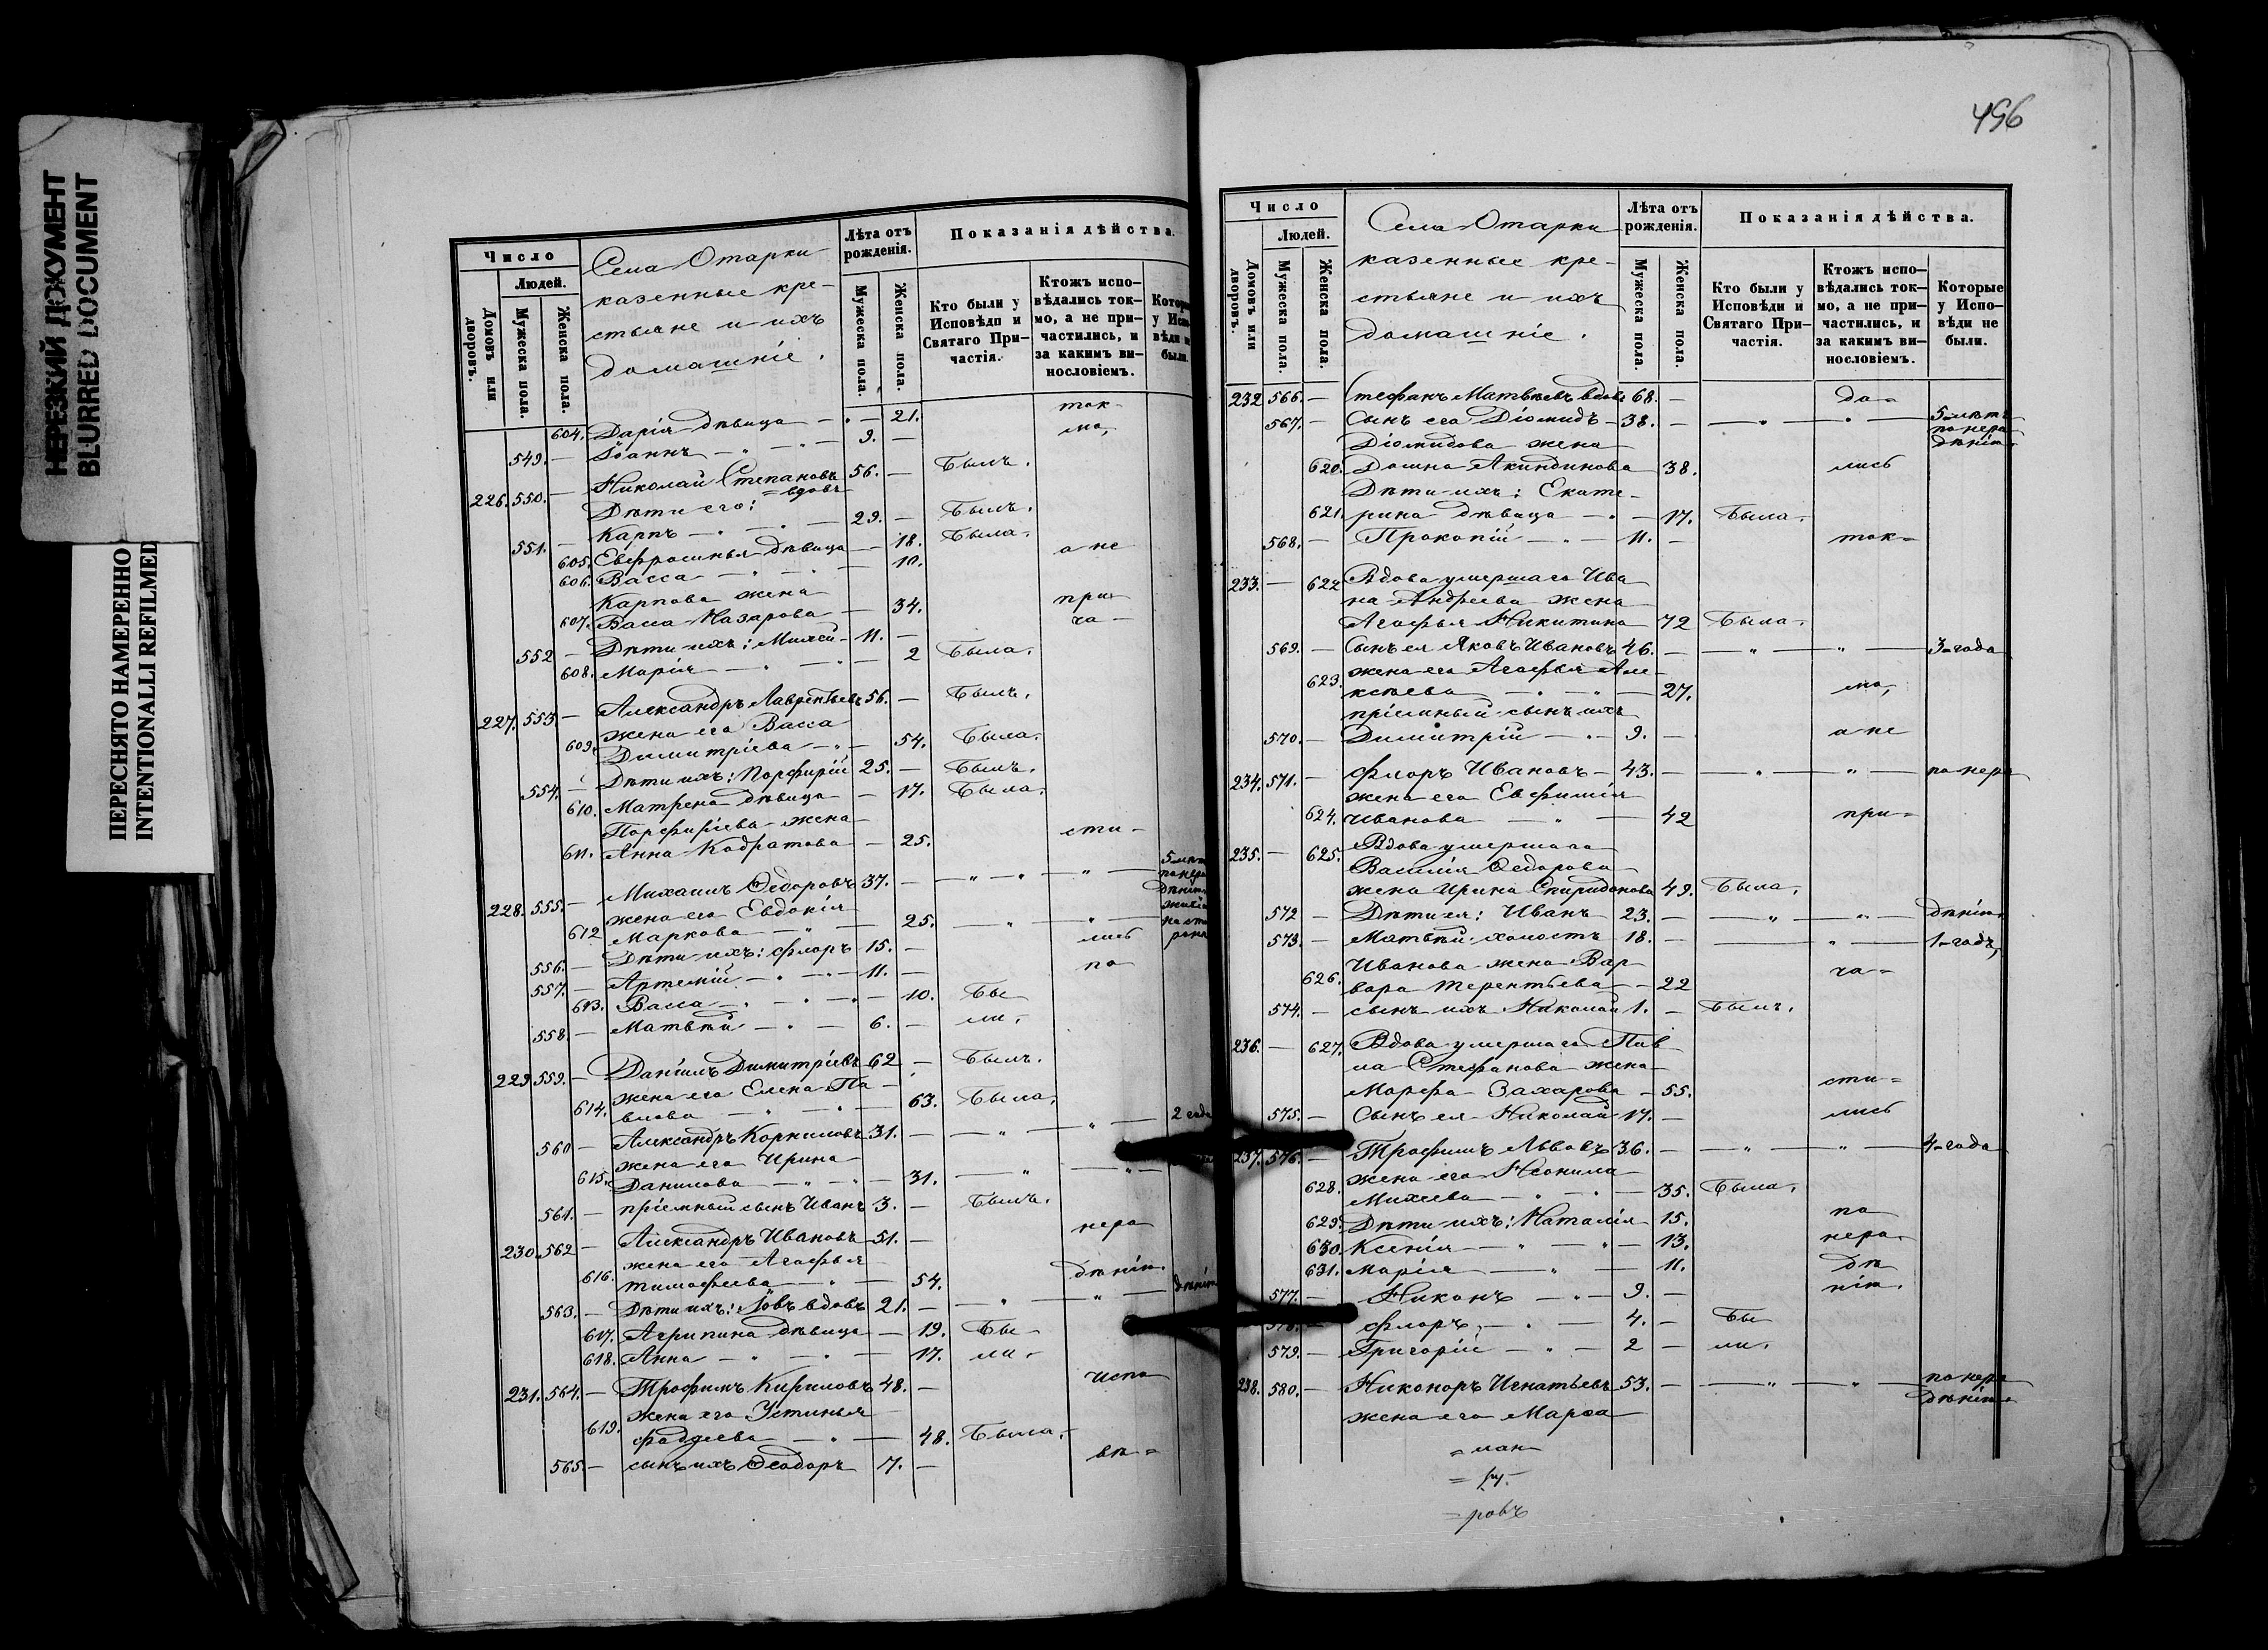 НЕРЕЗКИЙ ДОКУМЕНТ
BLURRED DOCUMENT
ПЕРЕСНЯТО НАМЕРЕННО
INTENTIONALLI REFILMED
Число
Людей.
Домовъ или дворовъ.
Мужеска пола.
Женска пола.
Села Отарки
казенные кре-
стьяне и ихъ
домашніе.
Лѣта отъ рожденія.
Мужеска пола.
Женска пола.
Показанія дѣйства.
Кто были у Исповѣди и Святаго При-частія.
Ктожъ испо-вѣдались ток-мо, а не при-частились, и за какимъ ви-нословіемъ.
604. Дарія дѣвица — " — 21. ток-
549. — Іоаннъ — " — 9. — мо,
226. 550. — Николай Степановъ 56. — Былъ.
= вдовъ
Дѣти его:
551. — Карпъ — " — 29. — Былъ.
605. Евфросинья дѣвица — 18. Была.
606. Васса — " — " — 10. а не
Карпова жена
607. Васса Назарова — 34. при-
552 — Дѣти ихъ: Мих 11. — ча-
608. Марія — " — " — 2 Была.
227. 553 — Александръ Лаврентьевъ 56. — Былъ.
жена его Васса
609. Димитріева — " — 54. Была.
554. — Дѣти ихъ: Порфирій 25. — Былъ.
610. Матрена дѣвица — 17. Была.
Порфиріева жена
611. Анна Кодратова — 25. сти-
228. 555. — Михаилъ Ѳедоровъ 37. — " — " — 5 лѣт
по нера
дѣнію
жена его Евдокія
612 Маркова — " — 25. — " — "
556. — Дѣти ихъ: Флоръ 15. — лись
557. — Артемій — " — " — 11. — по
613. Васса — " — " — 10. Бы-
558. — Матвѣй — " — 6. — ли.
229 559. — Даніилъ Димитріевъ 62 — Былъ.
614. жена его Елена Па-
влова — " — " — 63. Была.
560 — Александръ Корниловъ 31. — " — " — 2 года
жена его Ирина
615. Данилова — " — " — 31. — " — "
561. — пріемный сынъ Иванъ 3. — Былъ.
230. 562 — Александръ Ивановъ 51. — нера
616. жена его Агафья
Тимофеева — " — 54. дѣнію.
563. — Дѣти ихъ: Іовъ вдовъ 21. — " — " — дѣнію
617. Агрипина дѣвица — 19. Бы-
618. Анна — " — " — 17. ли.
231. 564. — Трофимъ Кириловъ 48. — испо
619. жена его Устинья
Фаддеева — " — 48. Была.
565. — сынъ ихъ Ѳеодоръ 7. — вѣ=
496
Число
Людей.
Домовъ или дворовъ.
Мужеска пола.
Женска пола.
Села Отарки
казенные кре-
стьяне и ихъ
домашніе.
Лѣта отъ рожденія.
Мужеска пола.
Женска пола.
Показанія дѣйства.
Кто были у Исповѣди и Святаго При-частія.
Ктожъ испо-вѣдались ток-мо, а не при-частились, и за какимъ ви-нословіемъ.
Которые у Испо-вѣди не были.
232 566. — Стефанъ Матвѣевъ вдовъ 68. — да=
567. — Сынъ его Діомидъ — 38. — " — " — 5 лѣтъ
по нера
дѣнію.
Діомидова жена
620. Домна Акиндинова 38. лись
Дѣти ихъ: Екате-
621. рина дѣвица — " — 17. Была.
568. — Прокопій — " — 11. — ток=
233. — 622 Вдова умершаго Ива
на Андреева жена
Агафья Никитина 72 Была.
569. — Сынъ ея Яковъ Ивановъ 46. — " — " — 3 года
623. жена его Агафья Але-
ксѣева — " — " — 27. мо,
пріемный сынъ ихъ
570. — Димитрій — " — 9. — а не
234. 571. — Флоръ Ивановъ — 43. — " — " — по нера
жена его Евфимія
624. Иванова — " — 42 при=
235. — 625. Вдова умершаго
Василія Ѳедорова
жена Ирина Спиридонова 49. Была.
572 — Дѣти ея: Иванъ 23. — " — " — дѣнію
573. — Матвѣй холостъ 18. — " — 1 годъ,
626. Иванова жена Вар
вара Терентьева — 22 ча=
574. — сынъ ихъ Николай 1. — Былъ.
236. — 627. Вдова умершаго Пав
ла Стефанова жена
Марфа Захарова — 55. сти=
575. — Сынъ ея Николай 17. — лись
237. 576. — Трофимъ Львовъ 36. — " — " — 4 года
628. жена его Неонила
Михеева — " — " — 35. Была.
629. Дѣти ихъ: Наталія — 15. по
630. Ксенія — " — " — 13. нера-
631. Марія — " — 11. дѣ
577. — Никонъ — " — 9. — нію.
578. — Флоръ — " — 4. — Бы
579. — Григорій — " — 2 — ли.
238. 580. — Никоноръ Игнатьевъ 53. — " — " — по нера
дѣнію
жена его Марѳа
= ман
= фу-
= ровъ